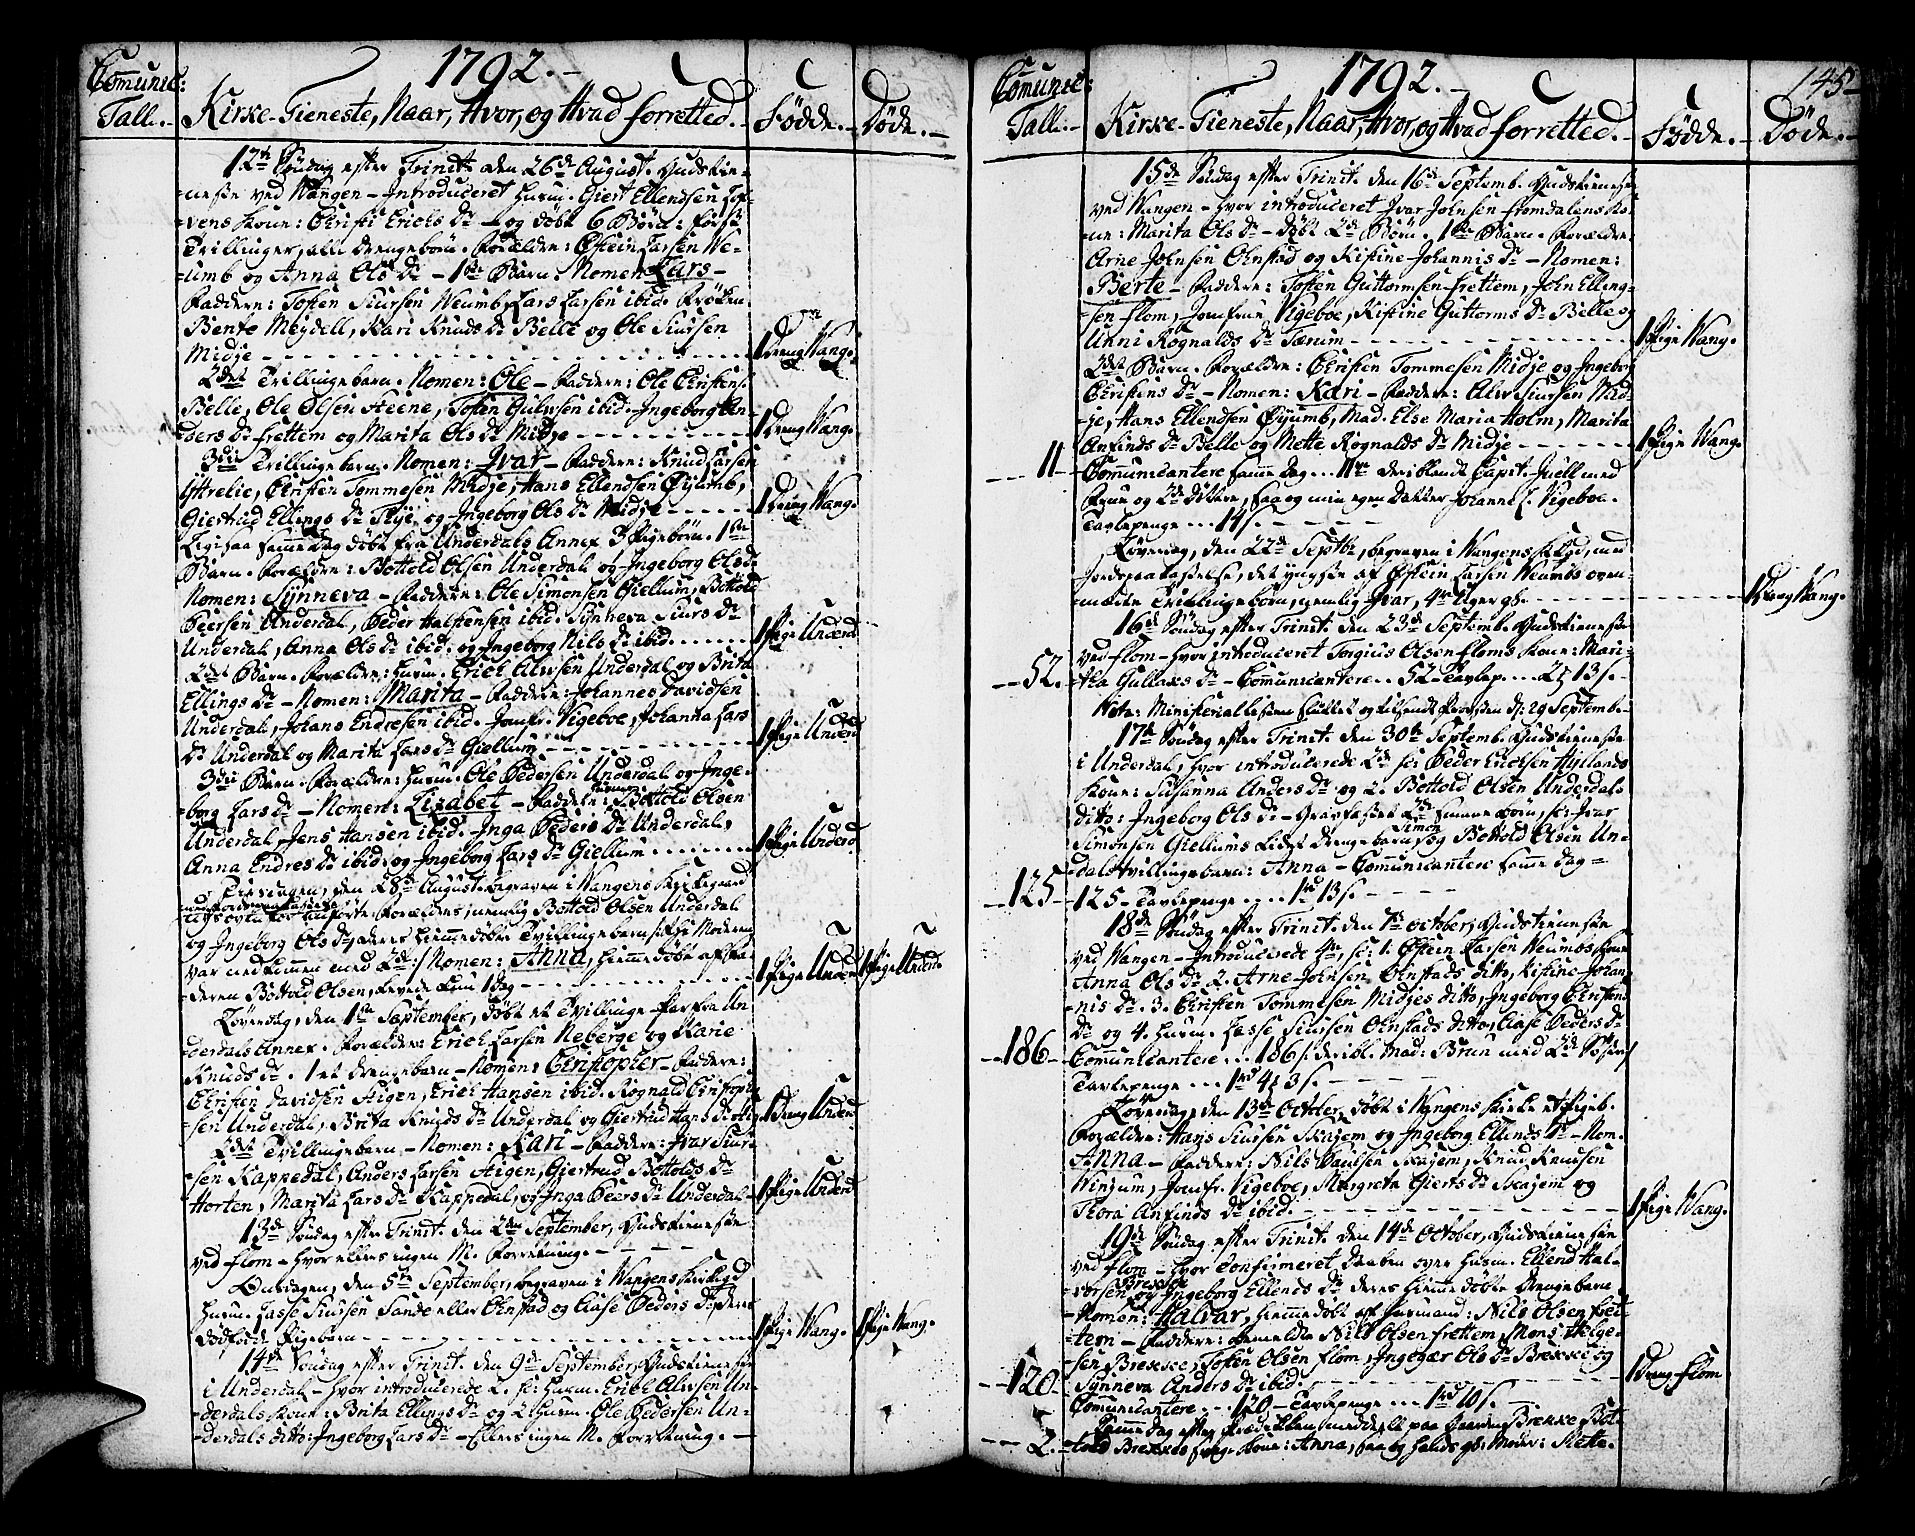 1792.
Comunic:
Tall.
Kirke-Tieneste, Naar, Hvor, og Hvad forretted.
Födde.
Döde.
12te Söndag efter Trinit. den 26de August. Gudstie-
-neste ved Wangen - Introduceret Husm. Giert Ellendsen
-vens Kone: Christi Erichs Dr - og döbt 6 Börn: først
Trillinger, alle drengebörn. Forældre: Østein Larsen We-
-umb og Anna Ols Dr - 1ste Barn. Nomen Lars -
Faddere: Tosten Siursen Weumb, Lars Larsen ibid. Frøken
Bente Meydell, Kari Knuds Dr Belle og Ole Siursen
Midje - 1 Dreng Wang.
2det Trillingebarn. Nomen: Ole - Faddere: Ole Christens.
Belle, Ole Olsen Steene, Tosten Gulvsen ibid. Ingeborg An-
ders Dr Frettem og Marita Ols Dr Midje - 1 Dreng Wang.
3die Trillingebarn. Nomen: Ivar - Faddere: Knud Larsen
Yttrelie, Christen Tommesen Midje, Hans Ellendsen Øyumb,
Giertrud Ellings Dr og Ingeborg Ols Dr Midje - 1 Dreng Wang.
Ligesaa samme Dag döbt fra Underdals Annex 3 Pigebörn. 1ste
Barn. Forældre: Bottold Olsen Underdal og Ingeborg Ols Dr
Nomen: Synneva - Faddere: Ole Simonsen Giellum, Bottold
Peersen Underdal, Peder Halstensen ibid. Synneva Siurs Dr
Underdal, Anna Ols Dr ibid. og Ingeborg Nils Dr ibid. 1 Pige Underd
2det Barn. Forældre: Husm. Erich Alvsen Underdal og Brita
Ellings Dr - Nomen: Marita - Faddere: Johannes Davidsen
Underdal, Johans Endresen ibid. Jomfr. Vigeboe, Johanna Lars
Dr Underdal og Marita Lars Dr Giellum - 1 Pige Underd
3die Barn. Forældre: Husm. Ole Pedersen Underdal og Inge-
-borg Lars Dr - Nomen: Lisabet - Faddere: Bottold Olsen
Underdal, Jens Hansen ibid. Inga Peders Dr Underdal,
Anna Endres Dr ibid. og Ingeborg Lars Dr Giellum - 1 Pige Underd
Tirsdagen, den 28de August, begraven i Wangens Kirkegaard
med Jordpaakastelse
anförte Forældres, nemlig Bottold Olsen Underdal
og Ingeborg Ols Dr, deres hiemmedöbte Tvillingebarn Moderen
var nedkommen med 2de Nomen: Anna, hiemmedöbt af Fa-
-deren Bottold Olsen, levede kun 1 Dag - 1 Pige Underd 1 Pige Underd.
Löverdag, den 1ste September, döbt et Tvilling-Par fra Un-
-derdals Annex. Forældre: Erich Larsen Neberge og Marie
Knuds Dr. 1 et drengebarn - Nomen: Christopher - Faddere:
Christen Davidsen Stigen, Erich Hansen ibid. Rognald Christophers
-sen Underdal, Brita Knuds Dr Underdal og Giertrud Hans Dr Stig. 1 Dreng Underd
2det Tvillingebarn - Nomen: Kari - Faddere: Ivar Siur-
sen Kappedal, Anders Larsen Stigen, Giertrud Bottolds Dr
Horten, Marita Lars Dr Kappedal, og Inga Peers Dr Underdal - 1 Pige Underd
13de Söndag efter Trinit. den 2den September, Gudstieneste
ved Flom - hvor ellers ingen M. Forretning. -
Onsdagen, den 5te September, begraven i Wangens Kirkegd
Husm. Lasse Siursen Sande eller Onstad og Aase Peders Dr deres
dödfödde Pigebarn - 1 Pige Wang. 1 Pige Wang.
14de Söndag efter Trinit. den 9de September, Gudstieneste
i Underdal - hvor introducerede 2. sc: Husm. Erich Alvsen Un-
-derdals Kone: Brita Ellings Dr og 2. Husm. Ole Pedersen Un-
-derdals ditto: Ingeborg Lars Dr - Ellers ingen M. Forretning. -
1792.
145
Comunic:
Tall.
Kirke-Tieneste, Naar, Hvor, og Hvad forretted.
Födde.
Döde.
15de Söndag efter Trinit. den 16de Septemb. Gudstieneste
ved Wangen - hvor introduceret Ivar Johnsen Fromdalens Ko-
-ne: Marita Ols Dr - Döbt 2de Börn. 1ste Barn. Forældre:
Arne Johnsen Onstad og Kistine Johannis Dr - Nomen:
Berte - Faddere: Tosten Guttormsen Frettem, John Elling-
-sen Flom, Jomfrue Vigeboe, Kistine Guttorms Dr Belle og
Unni Rognalds Dr Tærum - 1 Pige Wang.
2det Barn. Forældre: Christen Tommesen Midje og Ingeborg
Christens Dr - Nomen: Kari - Faddere: Alv Siursen Mid-
je, Hans Ellendsen Øyumb, Mad. Else Maria Holm, Marita
Anfinds Dr Belle og Mette Rognalds Dr Midje - 1 Pige Wang.
11 - Communicantere samme Dag .. 11ve deriblandt Capit. Juell med
Frue og 2de Döttre, saa og min egen Datter Johanne L. Vigeboe.
Tavlepenge ... 14 s.
Löverdag, den 22de Septbr, begraven i Wangens Kirkegd, med
Jordspaakastelse, det yngste af Østein Larsen Weumbs oven-
-meldte Trillingebörn, nemlig Ivar, 4re Uger gl. - 1 Dreng Wang.
16de Söndag efter Trinit. den 23de Septemb. Gudstieneste
ved Flom - hvor introduceret Torgius Olsen Floms Kone: Mari-
52. -tha Gullaks Dr - Comunicantere .. 52 - Tavlep. ... 2 13 s. -
Nota: Ministerial listerne sluttet og tilsendt Provsten d: 29 Septemb. -
17de Söndag efter Trinit. den 30te Septemb. Gudstieneste
i Underdal, hvor introducerede 2de sc: Peder Erichsen Hyllands
Kone: Susanna Anders Dr og 2. Bottold Olsen Underdals
ditto: Ingeborg Ols Dr - Gravfæstet 2de smaae börn, sc: Ivar
Simonsen Giellums lidet Drengebarn, Simon og Bottold Olsen Un-
-dals Tvillingebarn: Anna - Communicantere samme Dag =
125 - 125 - Tavlepenge .... 1 rd 13 s. -
18de Söndag efter Trinit. den 7de October, Gudstieneste
ved Wangen - Introducerede 4re, sc: 1. Østein Larsen Weumbs Kone
Anna Ols Dr 2. Arne Johnsen Onstads ditto, Kistine Johan-
-nis Dr. 3. Christen Tommesen Midjes ditto, Ingeborg Christens
Dr og 4. Husm. Lasse Siursen Onstads ditto, Aase Peders Dr
186 - Communicantere ... 186 /: deribl. Mad: Brun med 2de Söstre :/
Tavlepenge ... 1 rd 4 3 s. -
Löverdag, den 13de October, döbt i Wangens Kirke et Pigeb.
Forældre: Hans Siursen Skajem og Ingeborg Ellends Dr - Nom.
Anna - Faddere: Nils Paulsen Skajem, Knud Knudsen
Winjum, Jomfr. Vigeboe, Margrete Gierts Dr Skajem og
Thora Anfinds Dr ibid. - 1 Pige Wang.
19de Söndag efter Trinit. den 14de October, Gudstieneste
ved Flom - hvor confirmeret Daaben over Husm. Ellend Hal-
-vorsen Brekke og Ingeborg Ellends Dr deres hiemmedöbte Drengebarn
-Nomen: Halvar, hiemmedöbt af Husmand: Nils Olsen Fret-
-tem - Faddere: bemeldte Nils Olsen Frettem, Mons Helge-
-sen Brekke, Tosten Olsen Flom, Ingegær Ols Dr Brekke og
Synneva Anders Dr ibid. - 1 Dreng Flom
120 - Comunicantere .. 120 - Tavlepenge ... 1 rd 10 s. -
Samme Dag efter Prædiken meddeelt paa Gaarden Brekke Bot-
2. told Brekkes syge Kone: Anna, saa og hendes gl: Moder: Mette.